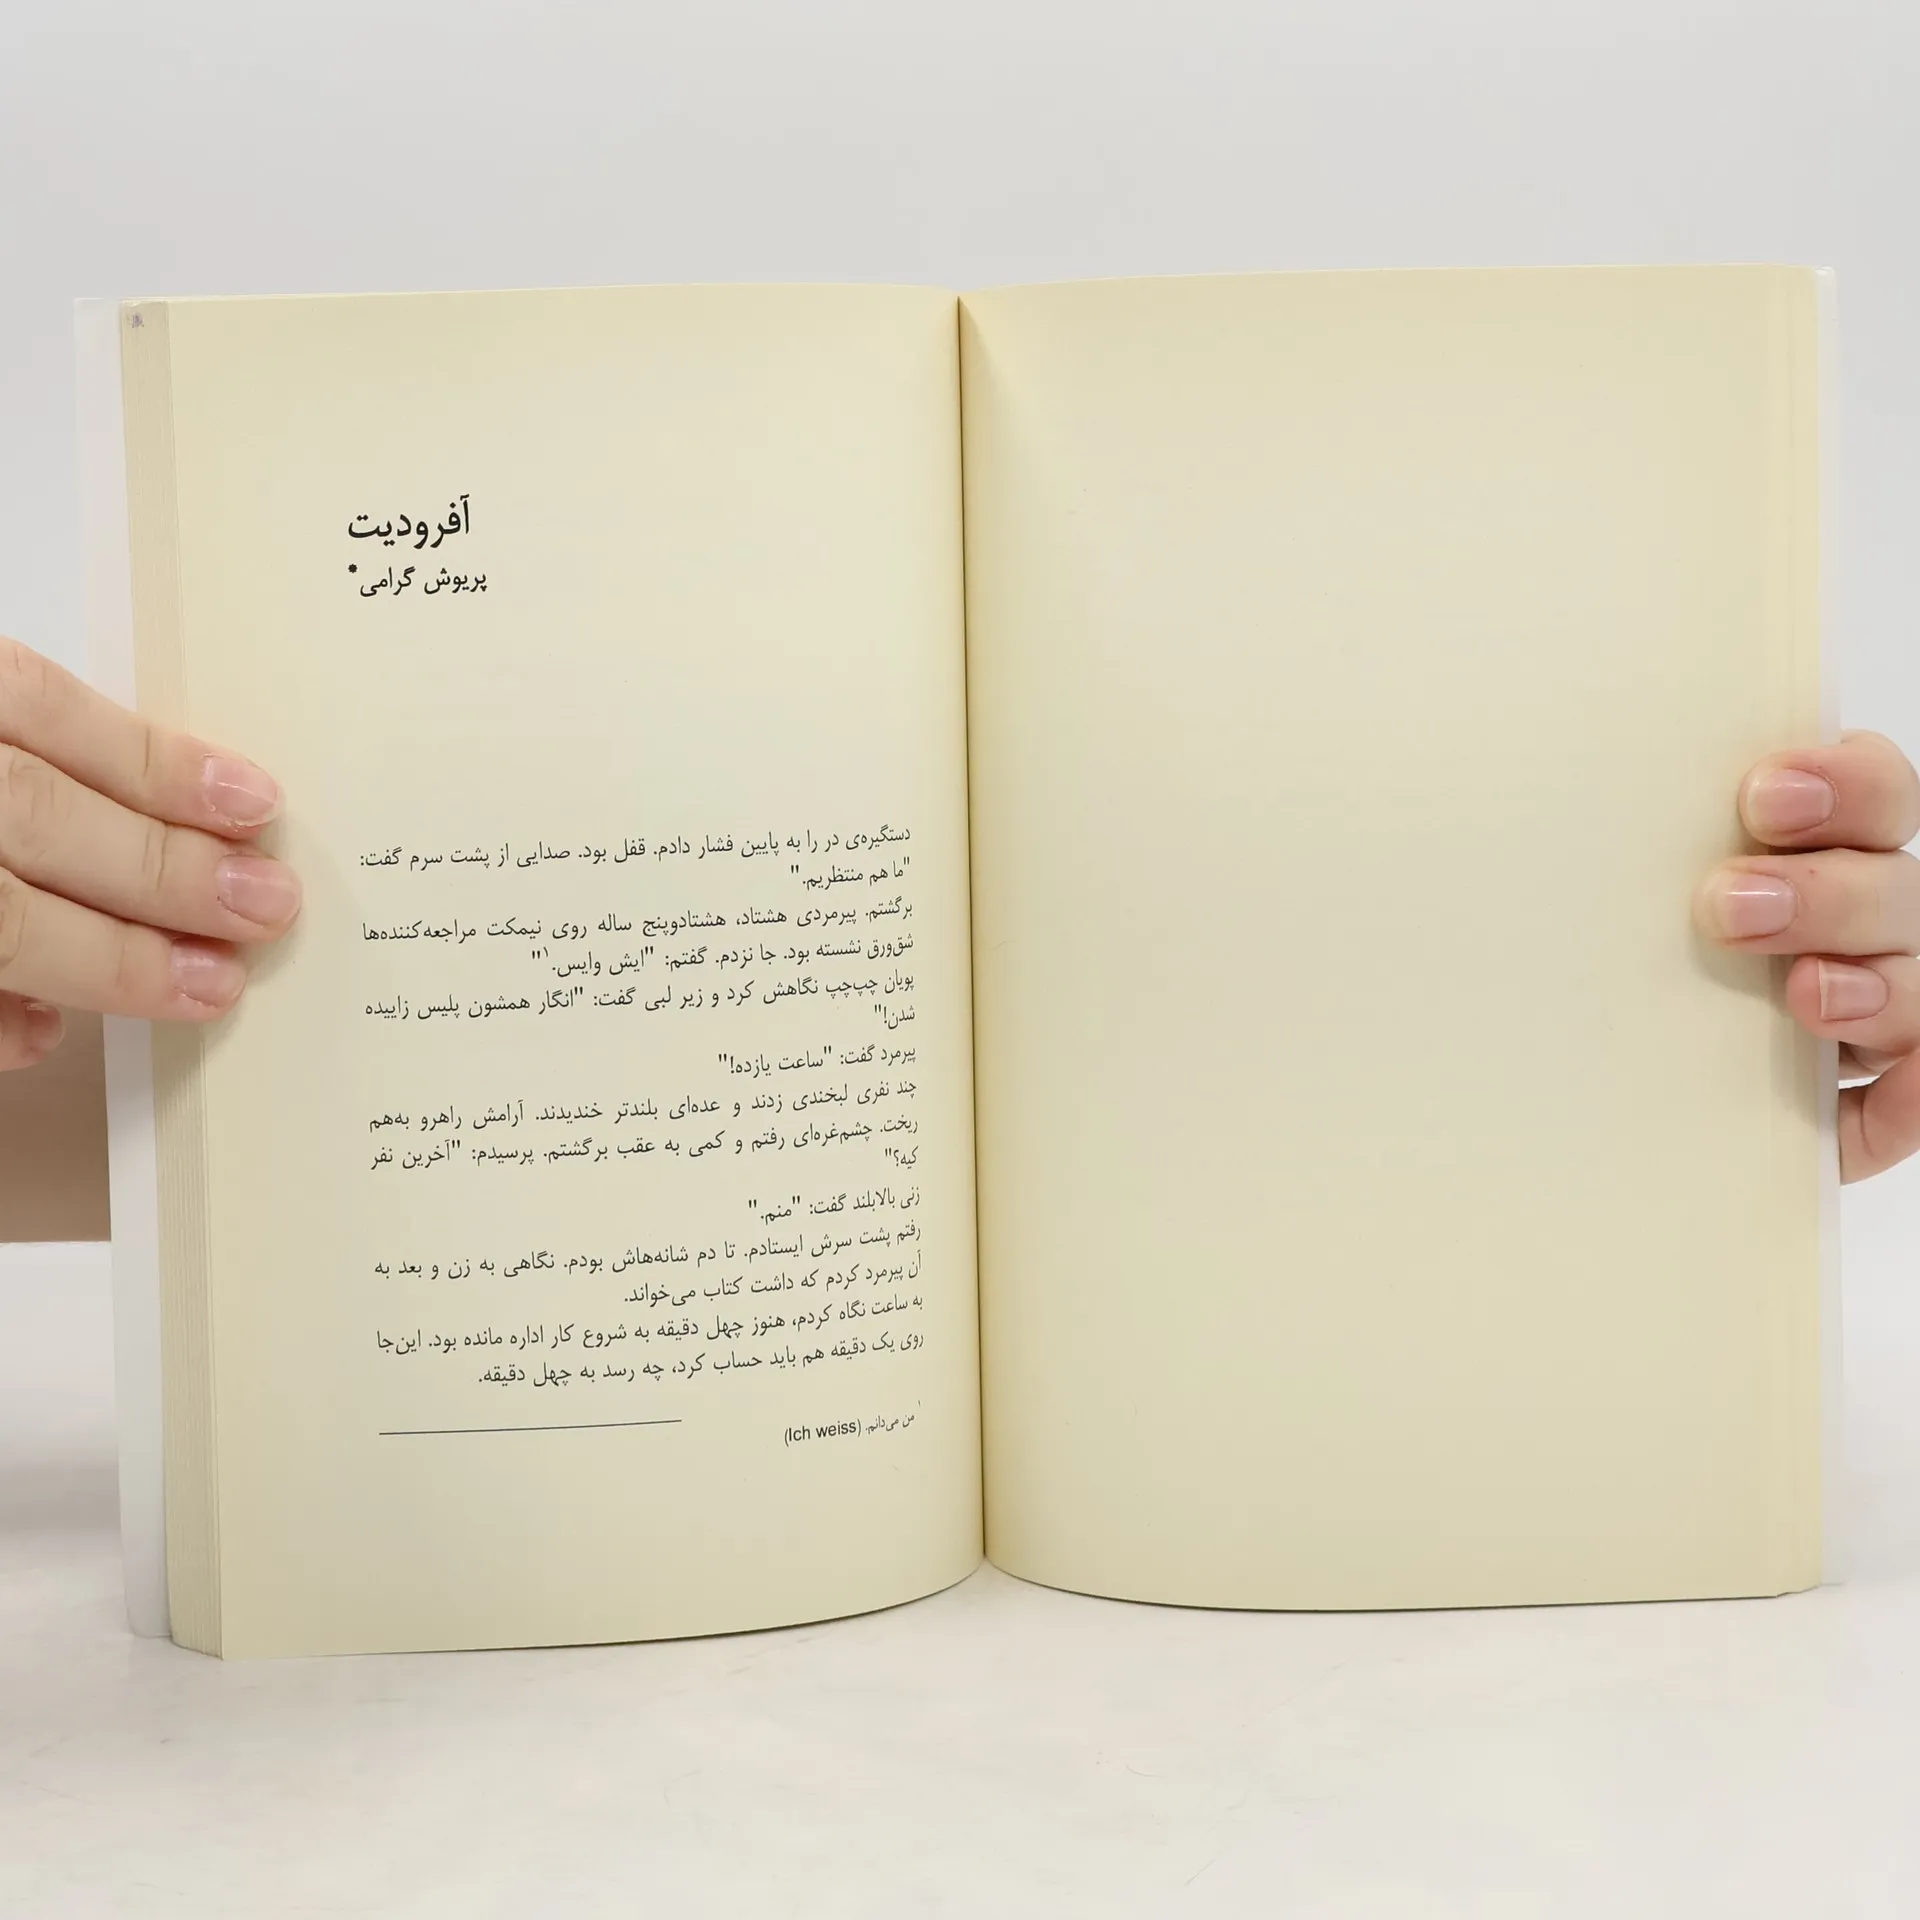 آفرودیت
پریوش گرامی*
دستگیره‌ی در را به پایین فشار دادم. قفل بود. صدایی از پشت سرم گفت:
"ما هم منتظریم."
برگشتم. پیرمردی هشتاد، هشتادوپنج ساله روی نیمکت مراجعه‌کننده‌ها
شق‌ورق نشسته بود. جا نزدم. گفتم: "ایش وایس.۱"
پویان چپ‌چپ نگاهش کرد و زیر لبی گفت: "انگار همشون پلیس زاییده
شدن!"
پیرمرد گفت: "ساعت یازده!"
چند نفری لبخندی زدند و عده‌ای بلندتر خندیدند. آرامش راهرو به‌هم
ریخت. چشم‌غره‌ای رفتم و کمی به عقب برگشتم. پرسیدم: "آخرین نفر
کیه؟"
زنی بالابلند گفت: "منم."
رفتم پشت سرش ایستادم. تا دم شانه‌هاش بودم. نگاهی به زن و بعد به
آن پیرمرد کردم که داشت کتاب می‌خواند.
به ساعت نگاه کردم، هنوز چهل دقیقه به شروع کار اداره مانده بود. این‌جا
روی یک دقیقه هم باید حساب کرد، چه رسد به چهل دقیقه.
۱ من می‌دانم. (Ich weiss)